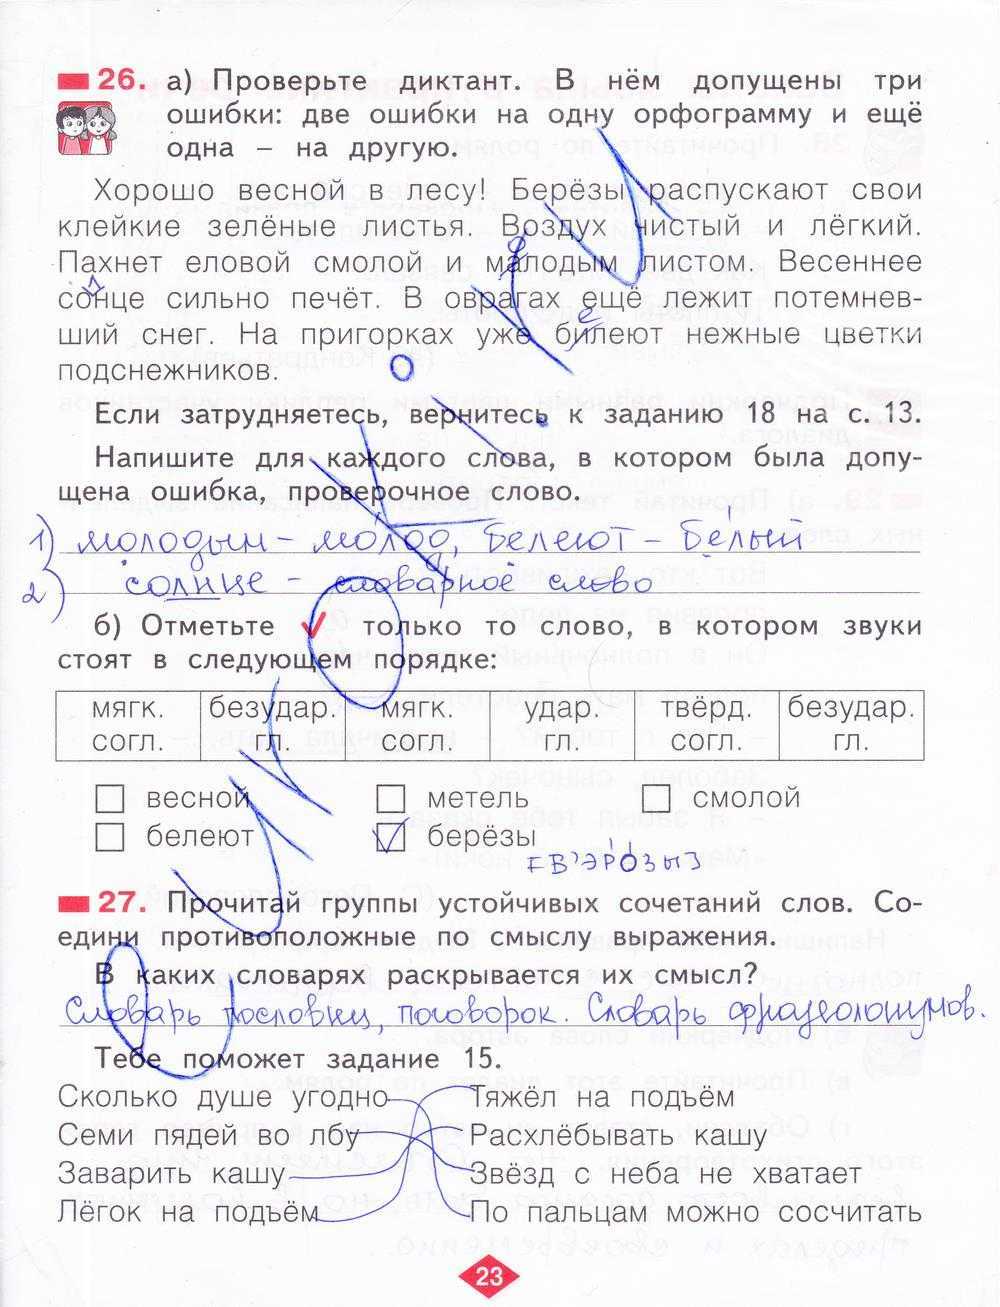 26. а) Проверьте диктант. В нём допущены три
ошибки: две ошибки на одну орфограмму и ещё
одна – на другую.
Хорошо весной в лесу! Берёзы распускают свои
клейкие зелёные листья. Воздух чистый и лёгкий.
Пахнет еловой смолой и малодым листом. Весеннее
о
сонце сильно печёт. В оврагах ещё лежит потемнев-
л
е
ший снег. На пригорках уже билеют нежные цветки
подснежников.
Если затрудняетесь, вернитесь к заданию 18 на с. 13.
Напишите для каждого слова, в котором была допу-
щена ошибка, проверочное слово.
1) молодым – мо́лод, белеют – бе́лый
2) солнце – словарное слово
б) Отметьте ✓ только то слово, в котором звуки
стоят в следующем порядке:
мягк. согл. безудар. гл. мягк. согл. удар. гл. твёрд. согл. безудар. гл.
весной метель смолой
белеют ✓ берёзы
[в'эр'о́зы]
27. Прочитай группы устойчивых сочетаний слов. Со-
едини противоположные по смыслу выражения.
В каких словарях раскрывается их смысл?
Словарь пословиц, поговорок. Словарь фразеологизмов.
Тебе поможет задание 15.
Сколько душе угодно Тяжёл на подъём
Семи пядей во лбу Расхлёбывать кашу
Заварить кашу Звёзд с неба не хватает
Лёгок на подъём По пальцам можно сосчитать
23